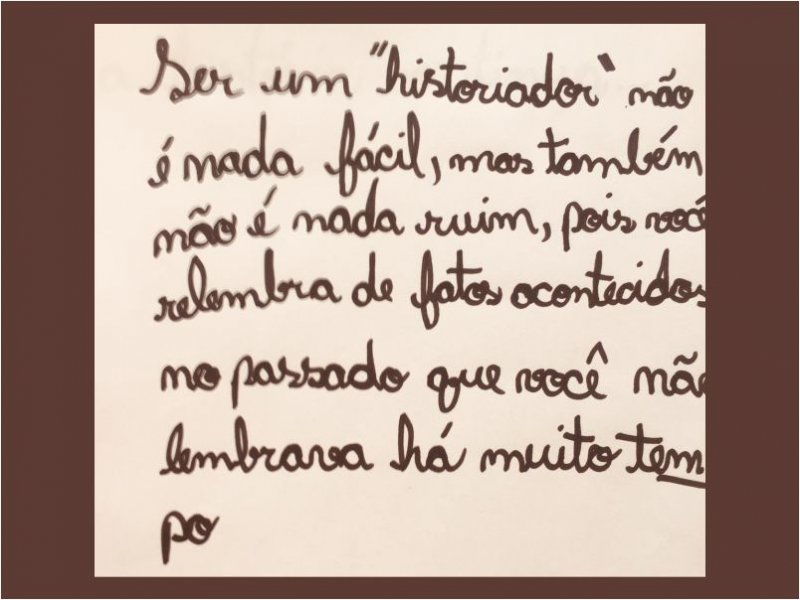 Ser um "historiador" não
é nada fácil, mas também
não é nada ruim, pois você
relembra de fatos acontecidos
no passado que você não
lembrava há muito tem
po